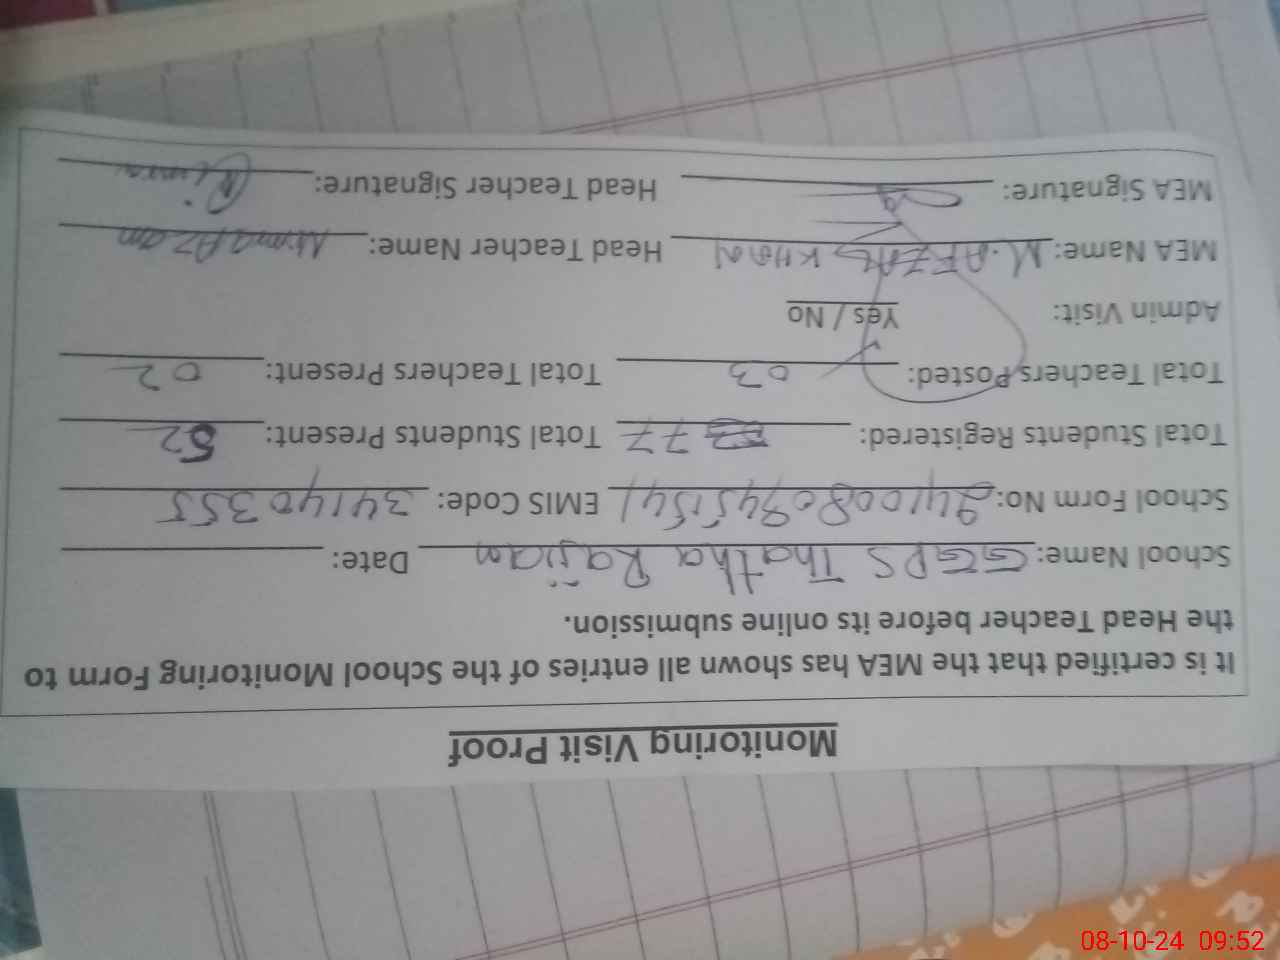 Monitoring Visit Proof
It is certified that the MEA has shown all entries of the School Monitoring Form to
the Head Teacher before its online submission.
School Name: GGPS Thatha Rajian Date:
School Form No: 24100809451541 EMIS Code: 34140355
Total Students Registered: 77 Total Students Present: 52
Total Teachers Posted: 03 Total Teachers Present: 02
Admin Visit: Yes / No
MEA Name: M. AFZAL KHAN Head Teacher Name: Azam
MEA Signature: Head Teacher Signature:
08-10-24 09:52